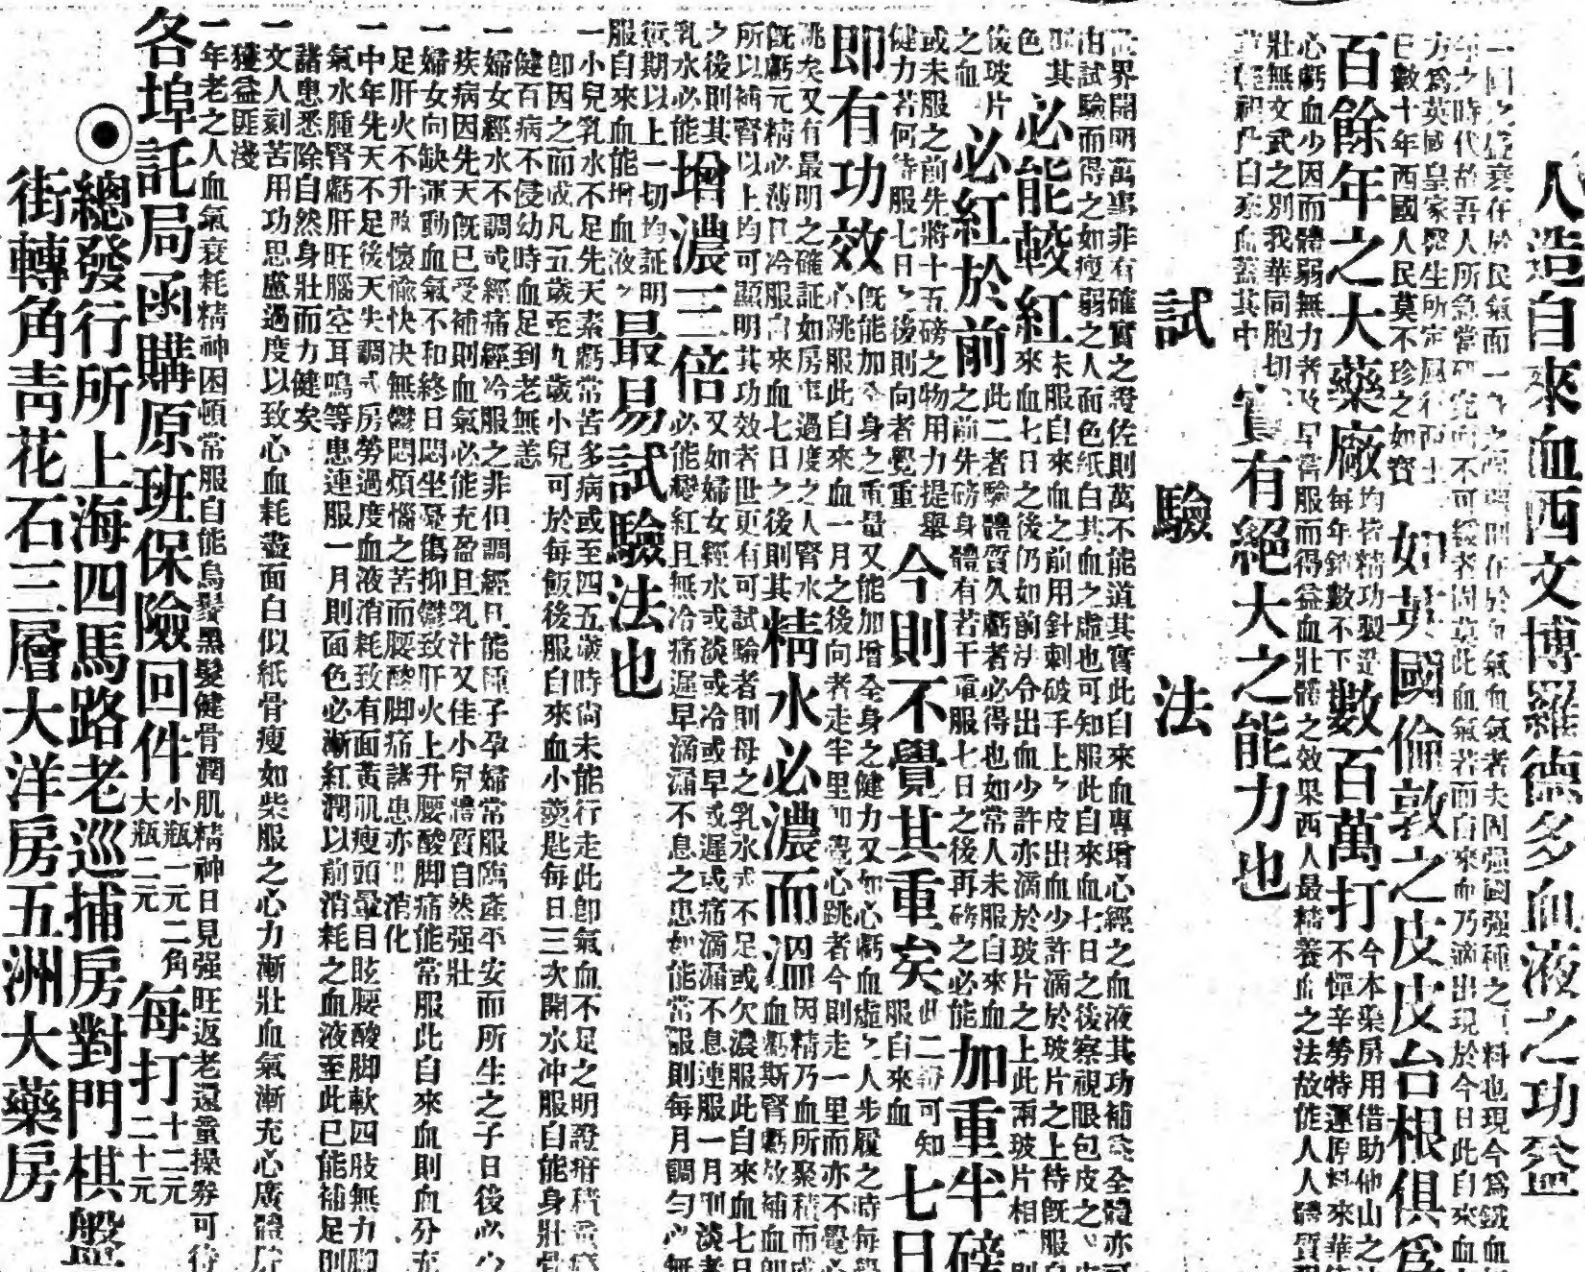 人造自來血西文博羅德多血液之功益
方爲英國皇家醫生所定
百餘年之大藥廠
每年銷數不下
數百萬打
曰數十年西國人民莫不珍之如寶
如英國倫敦之皮皮台根俱爲
今本藥房用借助他山之
不憚辛勞特運原料來華
心虧血少因而體弱無力者及早常服而得益血壯體之效果西人最精養血之法故能人人體質
壯無文武之別我華同胞切
實有絕大之能力也
試驗法
世界開明萬事非有確實之證佐則萬不能道其實此自來血專增心經之血液其功補益全體亦可
由試驗而得之如瘦弱之人面色紙白其血之虛也可知服此自來血七日之後察視眼包皮之
必能較紅
未服自來血之前用針刺破手上之皮出血少許滴於玻片之上待旣服
來血七日之後仍如前法令出血少許亦滴於玻片之上此兩玻片相
後玻片
之血
必紅於前
此二者驗體質久虧者必得也如常人未服自來血
之前先磅身體有若干重服七日之後再磅之必能
加重半磅
或未服之前先將十五磅之物用力提舉
健力若何待服七日之後則向者覺重
今則不覺其重矣
此二者可知
服自來血
七日
即有功效
旣能加全身之重量又能加增全身之健力又如心虧血虛之人步履之時每
心跳服此自來血一月之後向者走半里即覺心跳者今則走一里而亦不覺心
跳矣又有最明之確証如房事過度之人腎水
旣虧元精必薄且冷服自來血七日之後則其
精水必濃而溫
因精乃血所聚積而成
血虧斯腎虧故補血即
所以補腎以上均可顯明其功效者世更有可試驗者則母之乳水或不足或欠濃服此自來血七日
之後則其
乳水必能
增濃三倍
又如婦女經水或淡或冷或早或遲或痛滴漏不息連服一月則淡者
必能變紅且無冷痛遲早滴漏不息之患如能常服則每月調勻必無
衍期以上一切均証明
服自來血能增血液之
最易試驗法也
一小兒乳水不足先天素虧常苦多病或至四五歲時尙未能行走此卽氣血不足之明證
卽因之而成凡五歲至九歲小兒可於每飯後服自來血小羹匙每日三次開水冲服自能身壯骨
健百病不侵幼時血足到老無恙
一婦女經水不調或經痛經冷服之非但調經且能種子孕婦常服臨產平安而所生之子日後必少
疾病因先天旣已受補則血氣必能充盈且乳汁又佳小兒體質自然强壯
一婦女向缺運動血氣不和終日悶坐憂傷抑鬱致肝火上升腰酸脚痛能常服此自來血則血分充
足肝火不升胸懷愉快決無鬱悶煩惱之苦而腰酸脚痛諸患亦自消化
一中年先天不足後天失調或房勞過度血液消耗致有面黃肌瘦頭暈目眩腰酸脚軟四肢無力
氣水腫腎虧肝旺腦空耳鳴等患連服一月則面色必漸紅潤以前消耗之血液至此已能補足則
諸患悉除自然身壯而力健矣
一文人刻苦用功思慮過度以致心血耗盡面白似紙骨瘦如柴服之心力漸壯血氣漸充心廣體胖
獲益匪淺
一年老之人血氣衰耗精神困頓常服自能烏鬢黑髮健骨潤肌精神日見强旺返老還童操劵可待
各埠託局函購原班保險回件
小瓶一元二角
大瓶二元
每打
十二元
二十元
總發行所上海四馬路老巡捕房對門棋盤
街轉角靑花石三層大洋房五洲大藥房